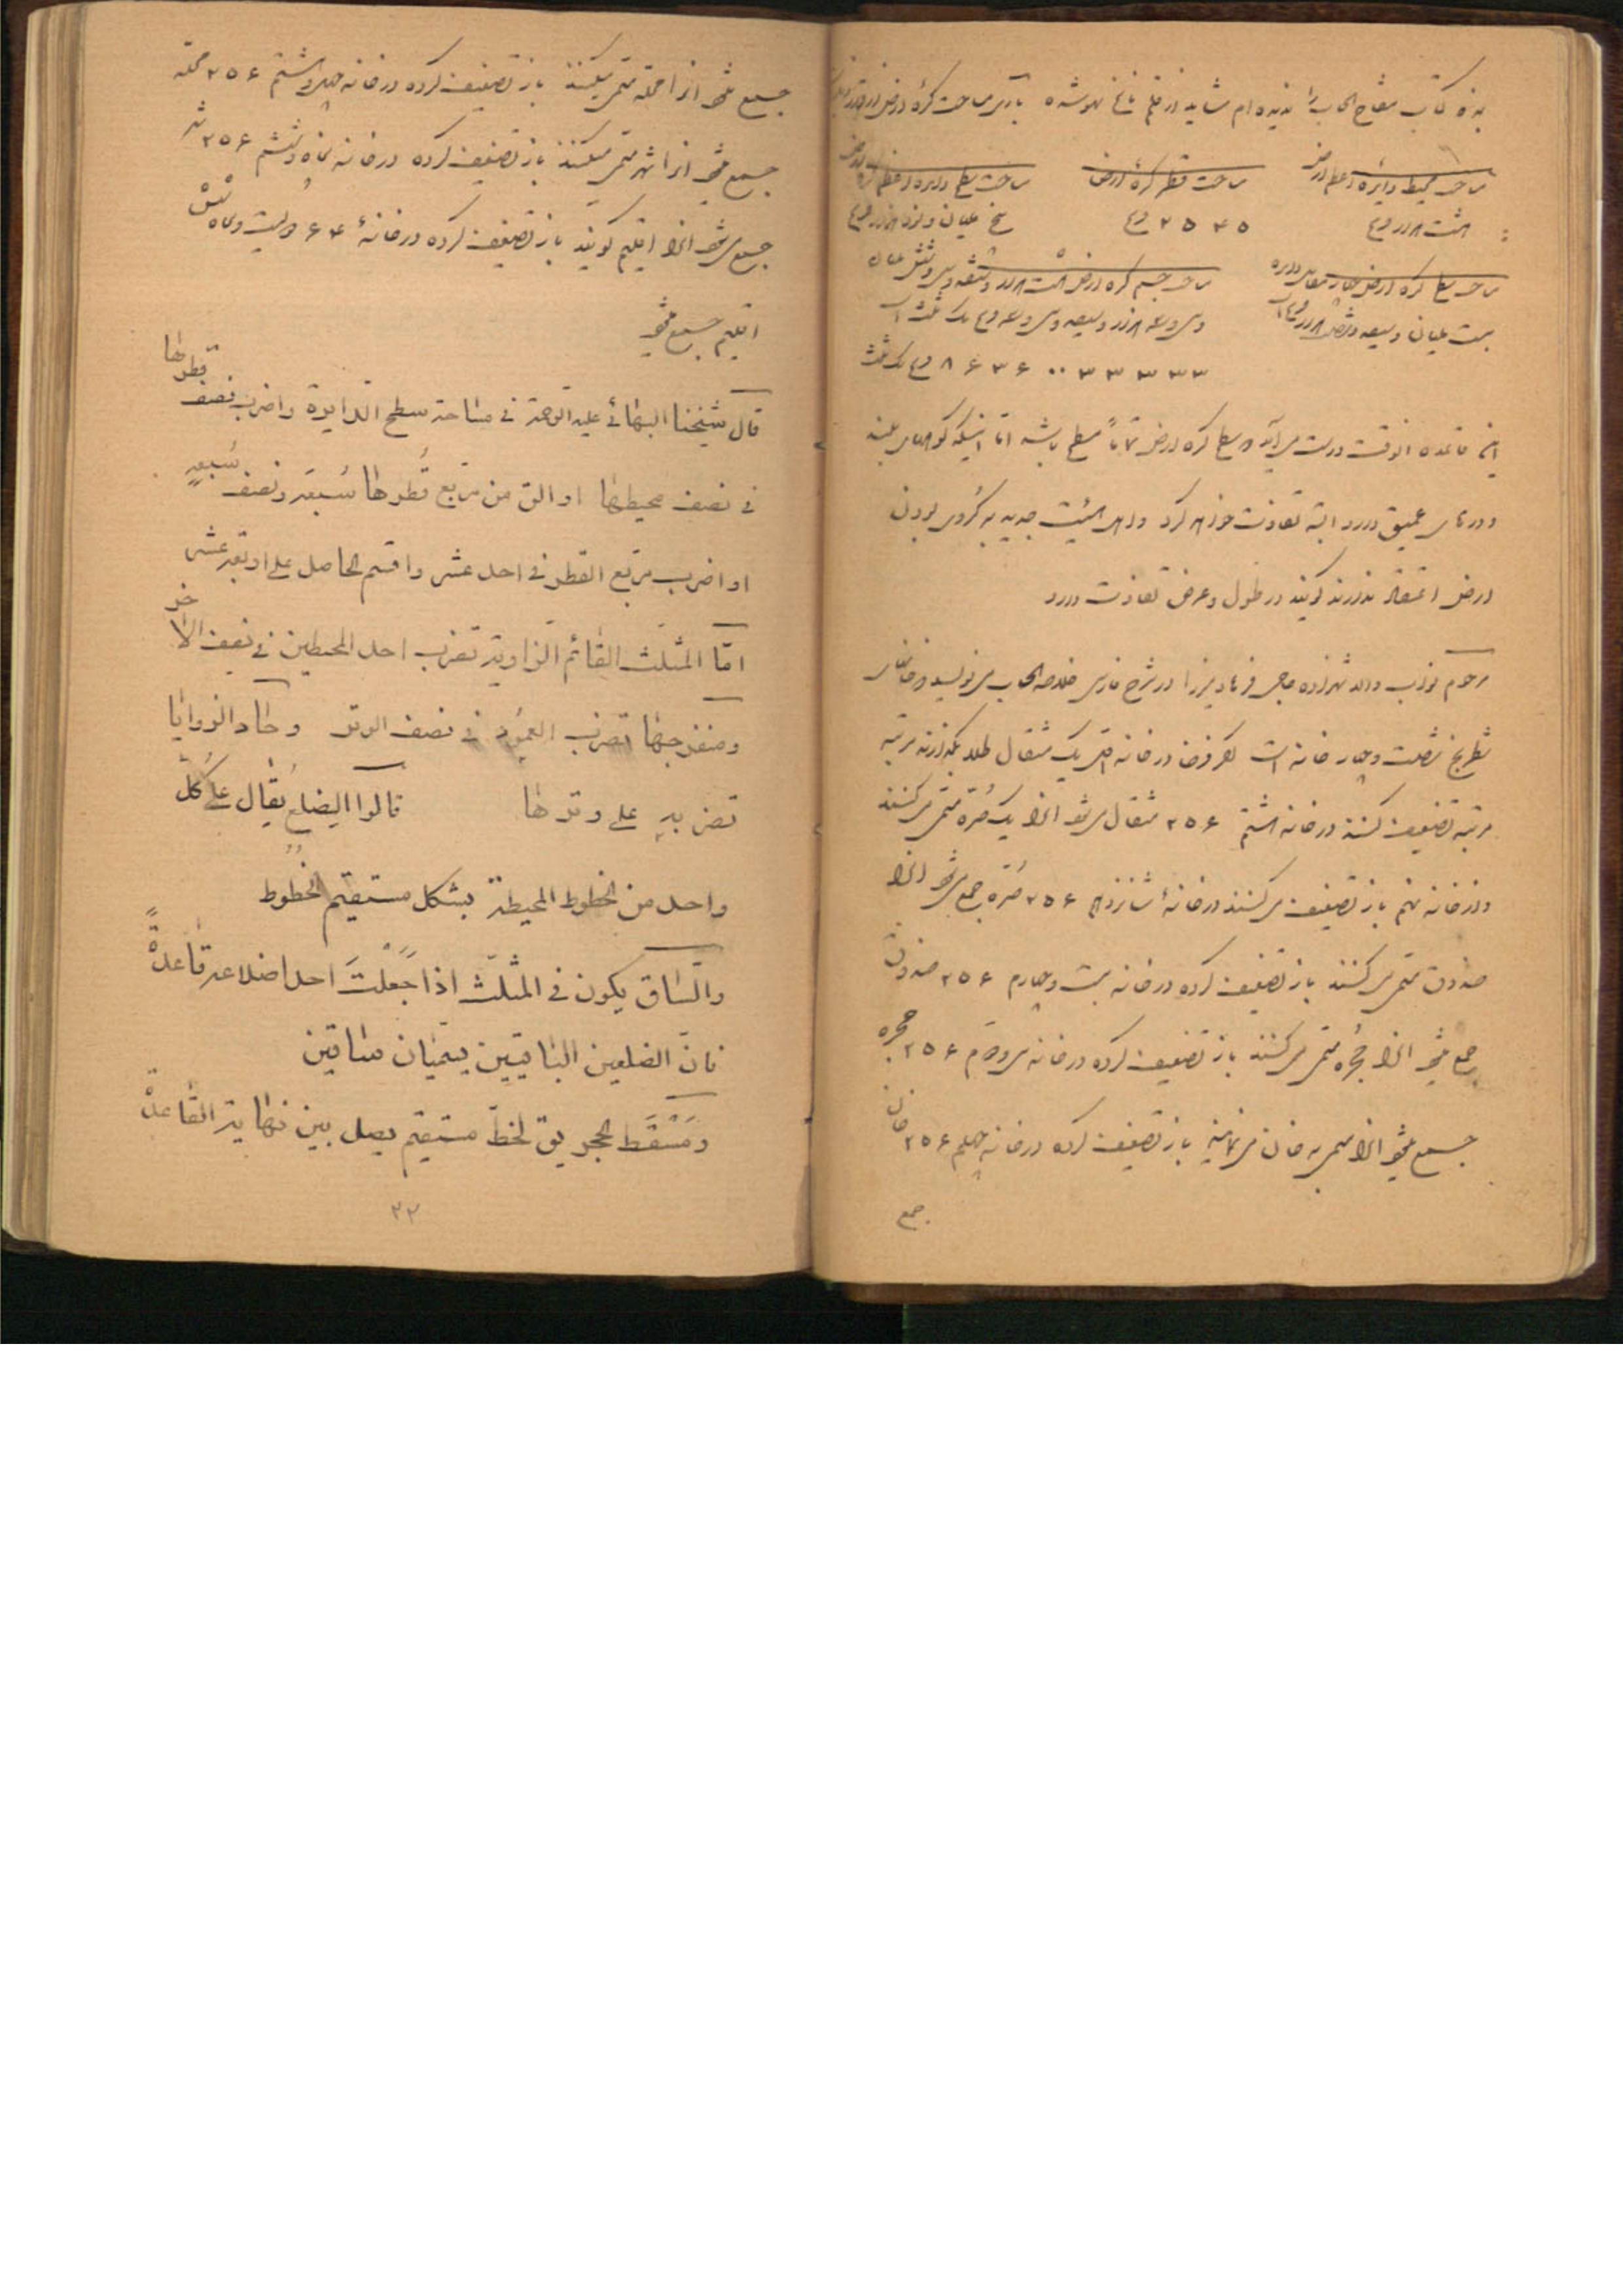 بنده کتاب مفتاح الحساب را ندیده‌ام شاید از قلم ناسخ سهو شده باری مساحت کرهٔ ارض
مساحت محیط دایره عظیم ارض
مساحت قطر کرهٔ ارض
مساحت سطح دایره عظیم
هشت هزار فرسخ
۲۵۴۵ فرسخ
پنج ملیان و نود هزار فرسخ
مساحت سطح کره ارض چهار مقابل دایره
بیست ملیان و سیصد و شصت هزار فرسخ است
مساحت جسم کره ارض هشت هزار و ششصد و سی و شش ملیان
و سی و سه هزار و سیصد و سی و سه فرسخ و یک ثلث است
۸۶۳۶۰۳۳۳۳۳ فرسخ یک ثلث
این قاعده آنوقت درست می‌آید که سطح کره ارض تماماً مسطح باشد اما اینکه کوههای بلند
و دره‌های عمیق دارد البته تفاوت خواهد کرد و اهل هیئت جدید به کروی بودن
ارض اعتقاد ندارند گویند در طول و عرض تفاوت دارد
مرحوم نواب والا شهزاده حاجی فرهاد میرزا در شرح فارسی خلاصة الحساب می‌نویسد که خانهای
شطرنج شصت و چهار خانه است اگر فرضا در خانه اول یک مثقال طلا بگذارند مرتبه
مرتبه تضعیف کنند در خانه هشتم ۲۵۶ مثقال می‌شود آنرا یک صره مسمی می‌کنند
و از خانه نهم باز تضعیف می‌کنند در خانهٔ شانزدهم ۲۵۶ صره جمع می‌شود آنرا
صندوق مسمی می‌کنند باز تضعیف کرده در خانه بیست و چهارم ۲۵۶ صندوق
جمع میشود آنرا حجره مسمی می‌کنند باز تضعیف کرده در خانه سی و دوم ۲۵۶ حجره
جمع میشود آنرا مسمی به خان می‌نمایند باز تضعیف کرده در خانه چهلم ۲۵۶ خان
جمع
جمع میشود آنرا محله مسمی میکنند باز تضعیف کرده در خانه چهل و هشتم ۲۵۶ محله
جمع میشود آنرا شهر مسمی میکنند باز تضعیف کرده در خانه پنجاه و ششم ۲۵۶ شهر
جمع می‌شود آنرا اقلیم گویند باز تضعیف کرده در خانهٔ ۶۴ دویست و پنجاه و شش
اقلیم جمع میشود
قال شیخنا البهائی علیه الرحمة فی مساحة سطح الدایرة واضرب نصف قطرها
فی نصف محیطها او الق من مربع قُطرها سُبعَه ونصف سُبعِهِ
او اضرب مربع القطر فی احد عشر واقسم الحاصل علی اربعة عشر
امّا المثلث القائم الزاویة تضرب احد المحیطین فی نصف الآخر
ومنفرجها تضرب العمود فی نصف الوتر وحاد الزوایا
تضربه علی وترها قالوا الضلعُ یُقال علی کُلّ
واحد من الخطوط المحیطة بشکل مستقیم الخطوط
والسّاق یکون فی المثلّث اذا جَعَلْتَ احد اضلاعه قاعدةً
فانّ الضلعین الباقیین یسمّیان ساقین
ومَسْقَط الحجر یق لخطّ مستقیم یصل بین نهایة القاعدة
۳۲